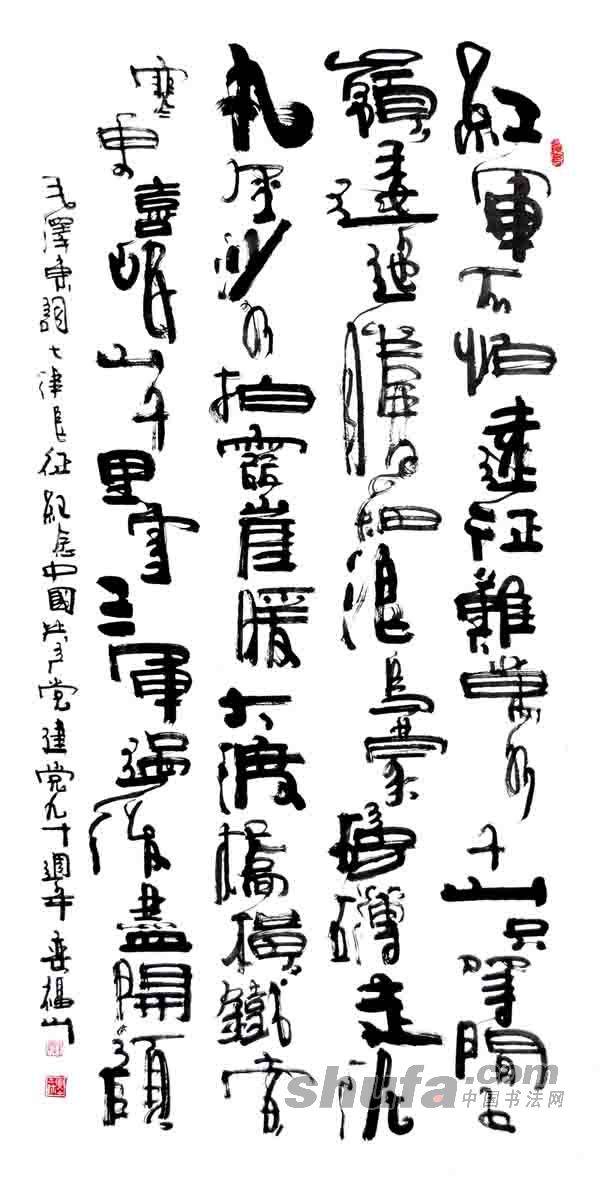 紅軍不怕遠征難萬水千山只等閒五
嶺逶迤騰細浪烏蒙磅礴走泥
丸金沙水拍雲崖暖大渡橋橫鐵索
寒更喜岷山千里雪三軍過後盡開顏
毛澤東詞七律長征紀念中國共产党建党九十週年福山
shufa.com
中国书法网